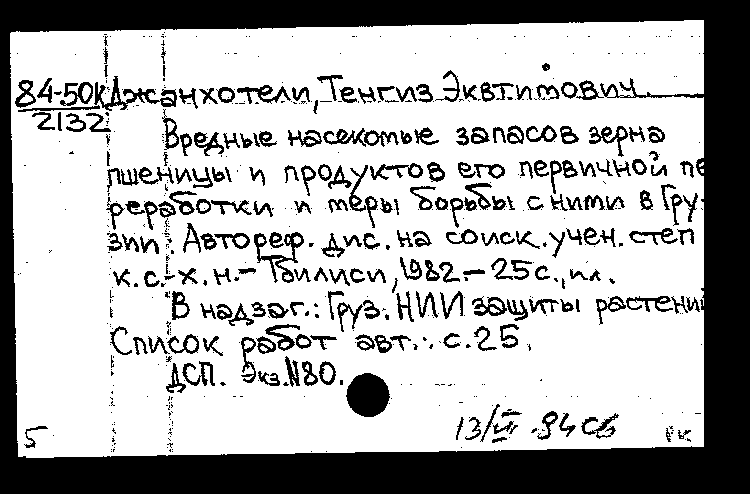 84-50к Джанхотели, Тенгиз Эквтимович.
2132
Вредные насекомые запасов зерна
пшеницы и продуктов его первичной пе-
реработки и меры борьбы с ними в Гру-
зии: Автореф. дис. на соиск. учен. степ
к. с.-х. н.- Тбилиси, 1982.- 25 с., ил.
В надзаг.: Груз. НИИ защиты растений
Список работ авт.: с. 25.
ДСП. Экз. N80.
5 13/III-84 Сб